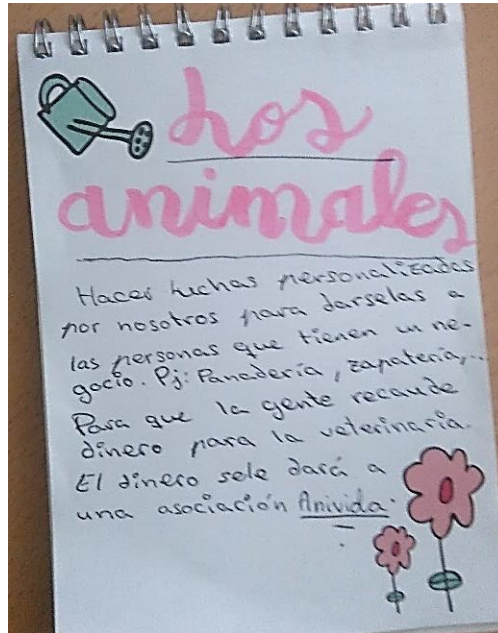 Los
animales
Hacer huchas personalizadas
por nosotros para darselas a
las personas que tienen un ne-
gocio. Pj: Panadería, zapatería,...
Para que la gente recaude
dinero para la veterinaria.
El dinero sele dará a
una asociación Anivida.